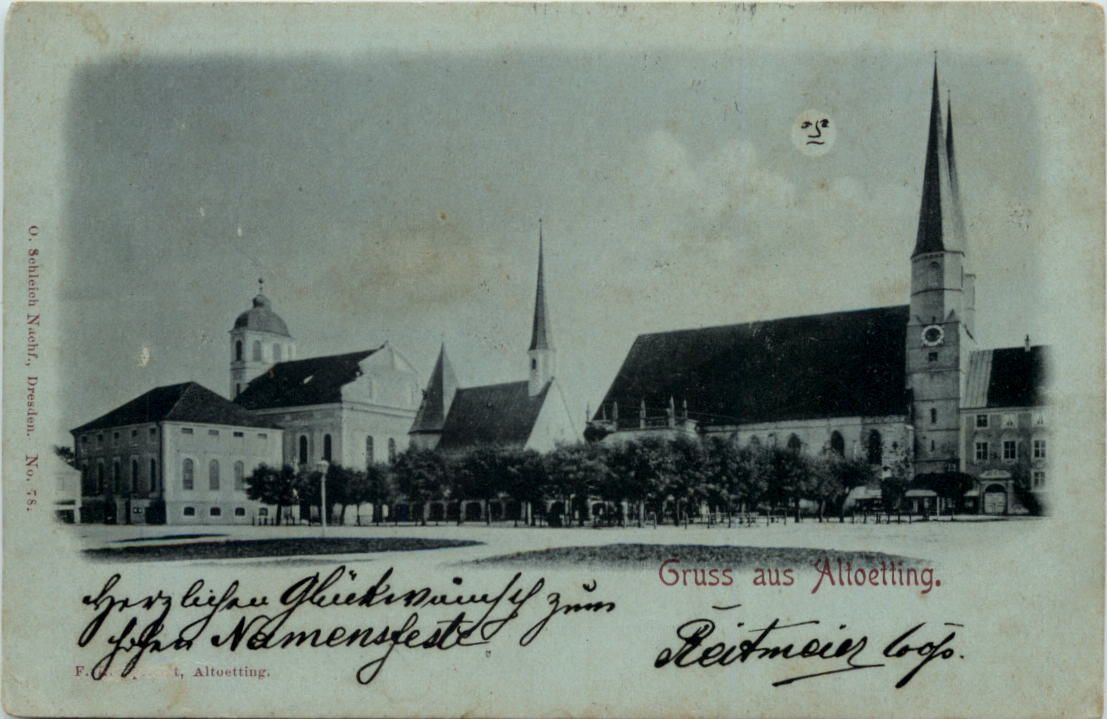 O. Schleich Nachf., Dresden. No. 78.
Gruss aus Altoetting.
Herzlichen Glückwünsch zum
hohen Namensfeste
Reitmeier
F. Altoetting.